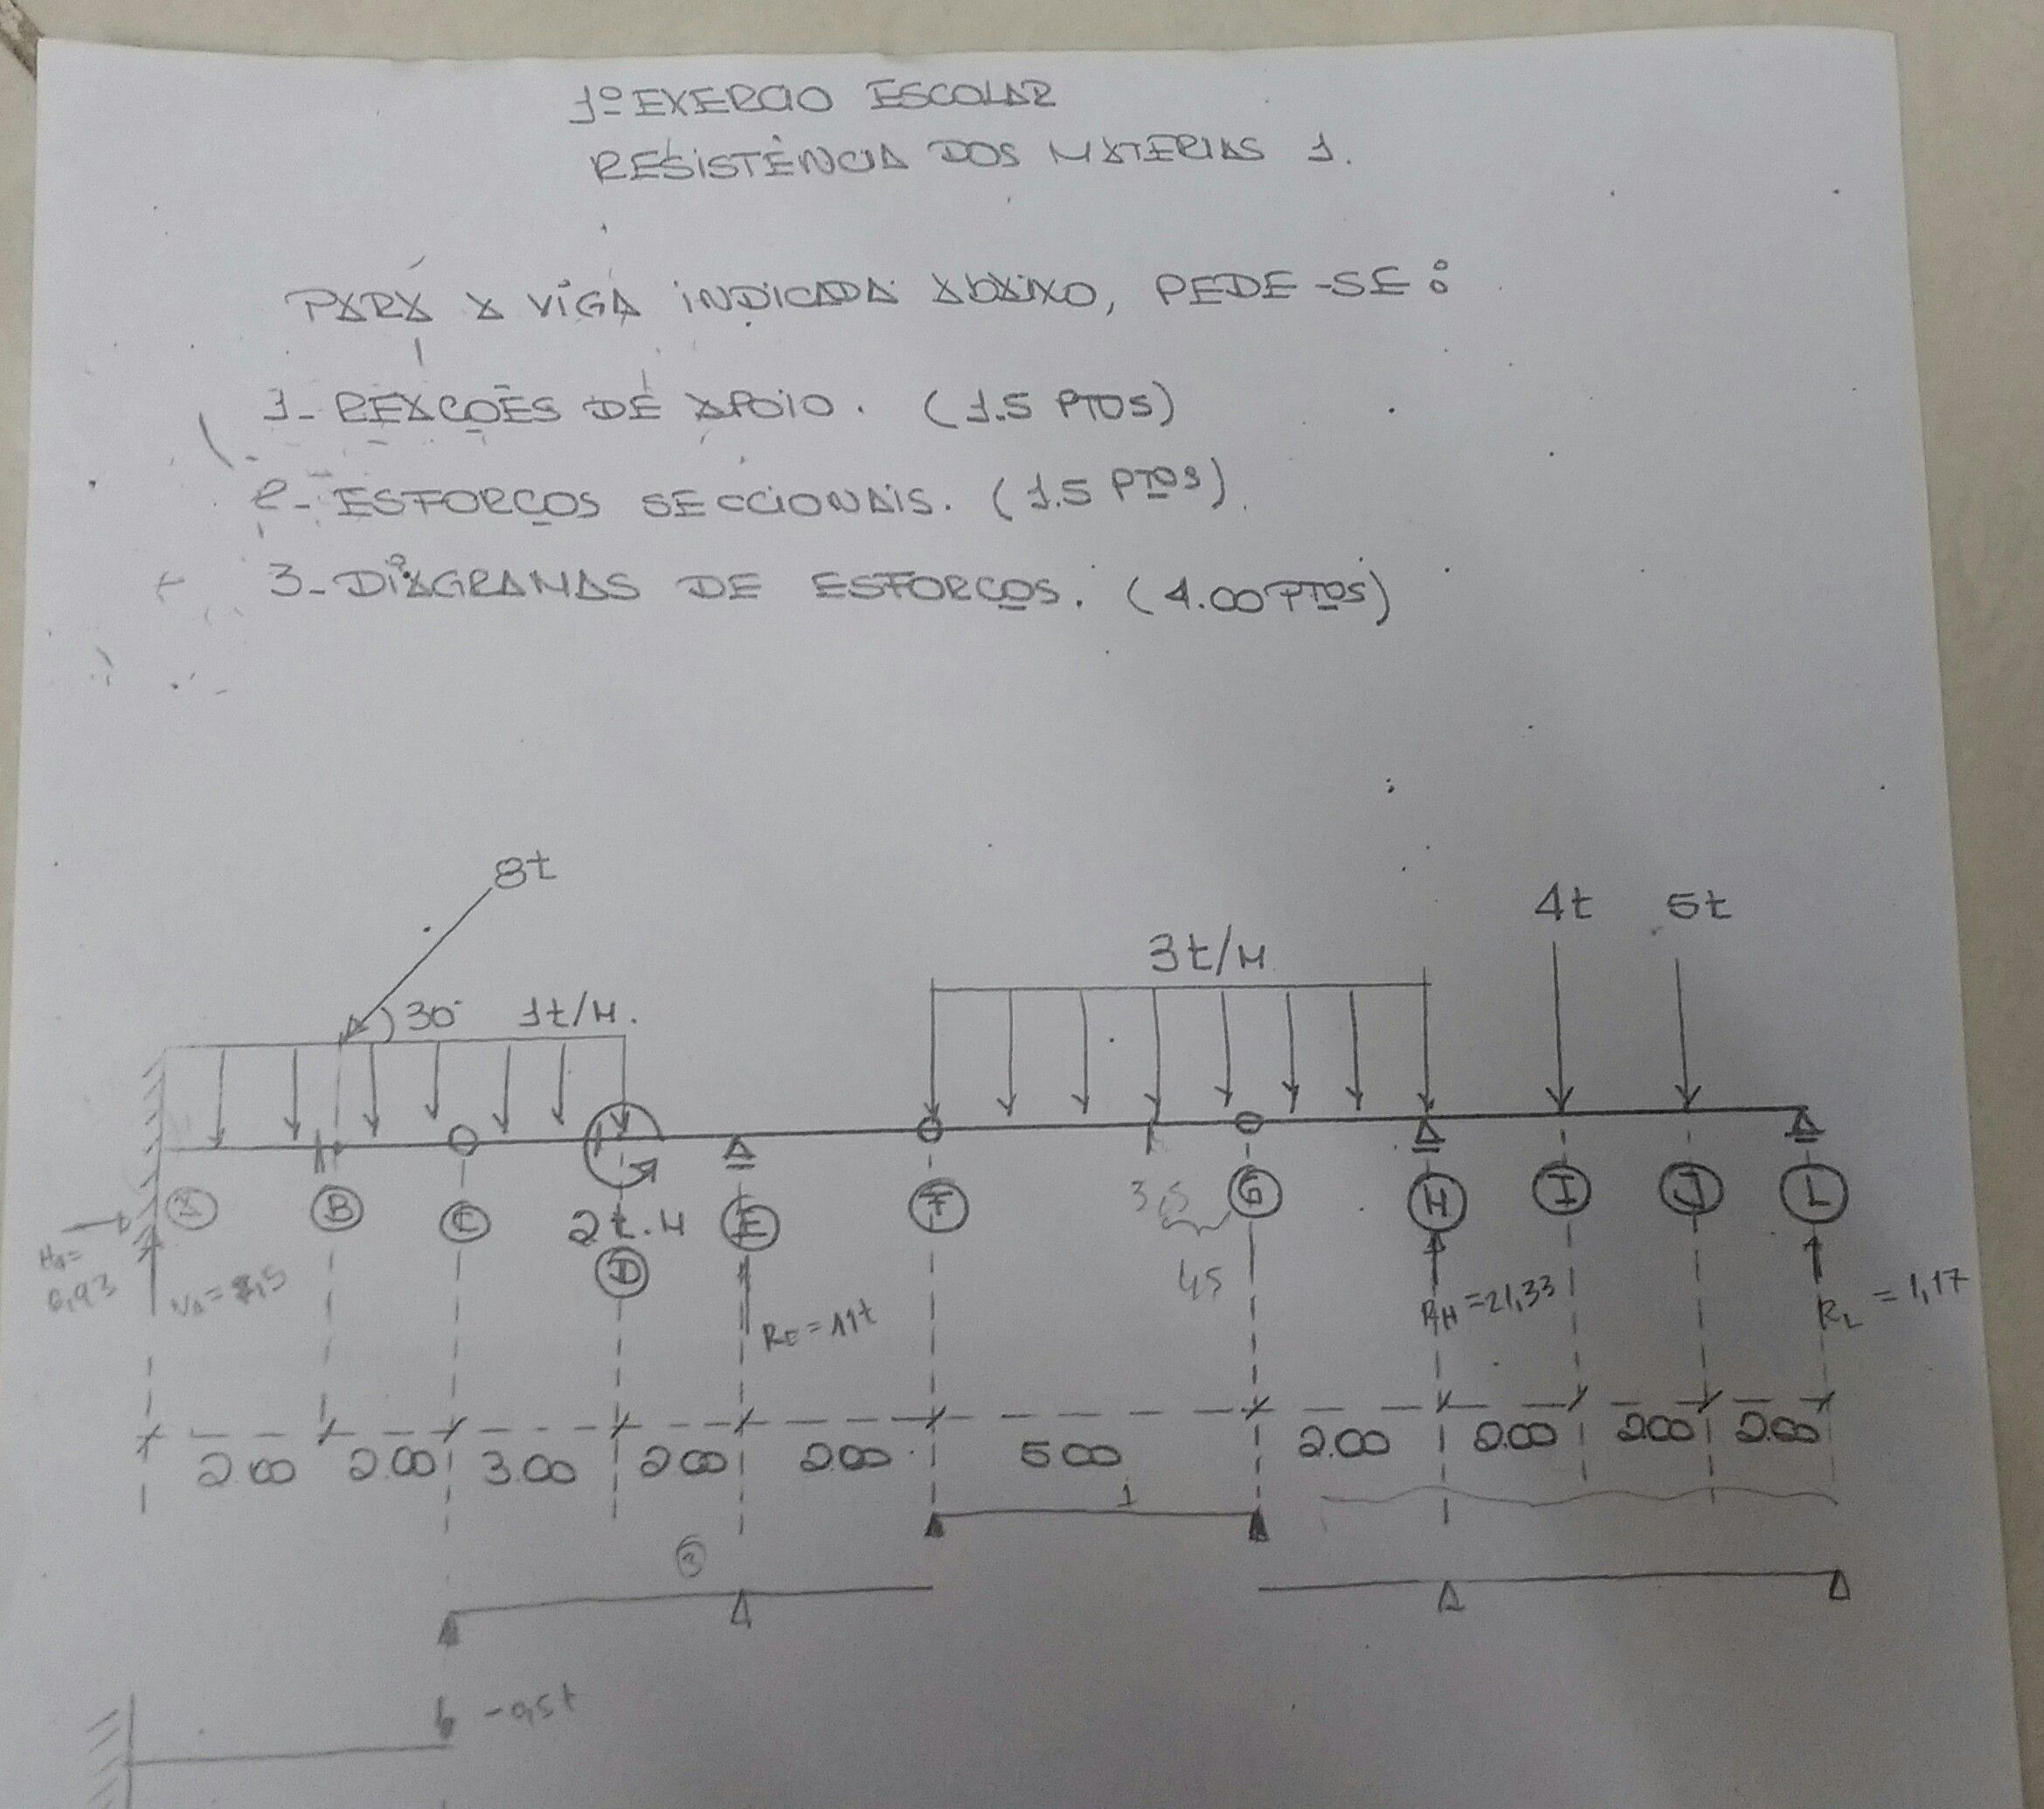 1º EXERCIO ESCOLAR
RESISTÊNCIA DOS MATERIAS 1.
PARA A VIGA INDICADA ABAIXO, PEDE-SE:
1- REAÇÕES DE APOIO. (1.5 PTOS)
2- ESFORÇOS SECCIONAIS. (1.5 PTOS).
3- DIAGRAMAS DE ESFORÇOS. (4.00 PTOS)
8t
4t 5t
3t/M
30° 1t/M.
A B C 2t.M E F 3,5 G H I J L
D
HA= 6,93 VA= RE=11t 4,5 RH=21,33 RL=1,17
2.00 2.00 3.00 2.00 2.00 5.00 2.00 2.00 2.00 2.00
1
3
-0,5t